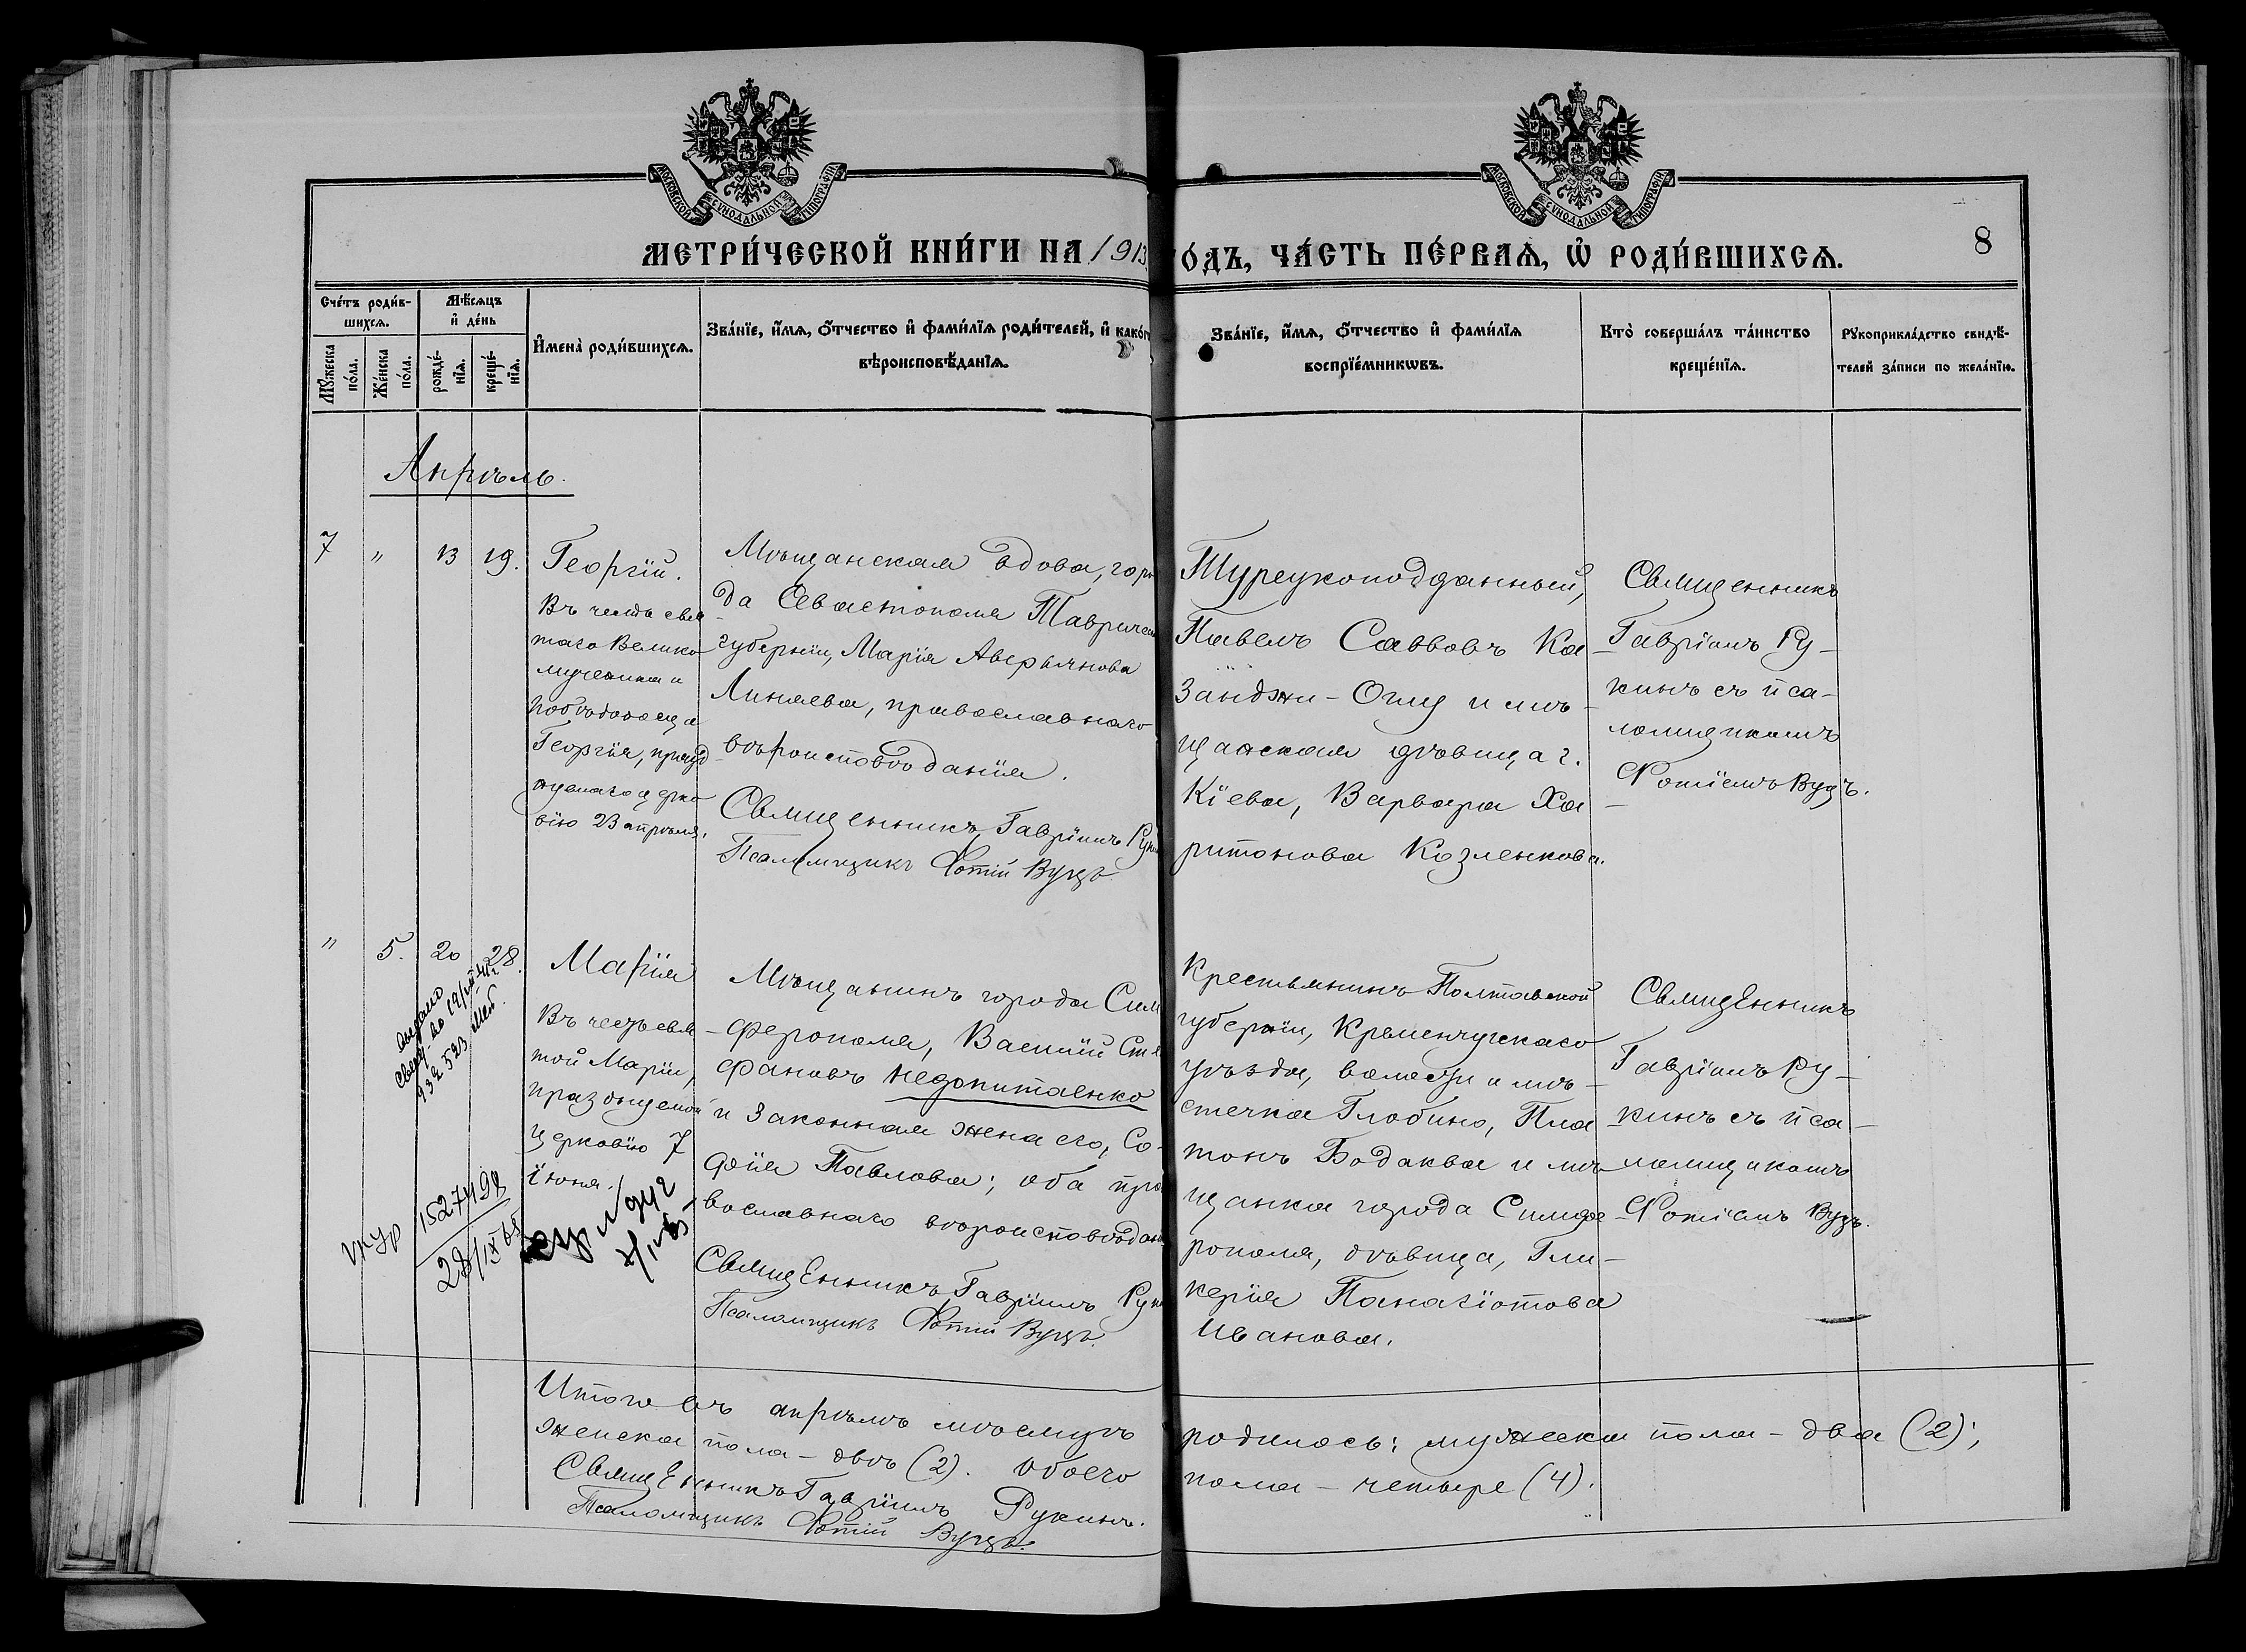 МОСКОВСКОЙ СѴНОДАЛЬНОЙ ТИПОГРАФІИ
МОСКОВСКОЙ СѴНОДАЛЬНОЙ ТИПОГРАФІИ
МЕТРИ́ЧЕСКОЙ КНИ́ГИ НА 1913
ГО́ДЪ, ЧА́СТЬ ПЕ́РВАѦ, Ѡ РОДИ́ВШИХСѦ.
8
Сче́тъ роди́в-
шихсѧ.
Мѣ́сѧцъ
и҆ де́нь
Мꙋ́жеска
по́ла.
Же́нска
по́ла.
рожде́-
нїѧ.
креще́-
нїѧ.
И҆мена̀ роди́вшихсѧ.
Зва́нїе, и҆́мѧ, ѻ҆́тчество и҆ фами́лїѧ роди́телей, и҆ како́г
вѣроисповѣ́данїѧ.
Зва́нїе, и҆́мѧ, ѻ҆́тчество и҆ фами́лїѧ
воспрїе́мникѡвъ.
Кто̀ соверша́лъ та́инство
креще́нїѧ.
Рꙋкоприкла́дство свидѣ́-
телей за́писи по жела́нїю.
Апрѣль.
7 " 13 19.
Георгій.
Въ честь свя
таго Велико
мученика и
побѣдоносца
Георгія, празд
нуемаго церко
вію 23 апрѣля.
Мѣщанская вдова, горо
да Севастополя Тавричес
губерніи, Марія Аверьянова
Линяева, православнаго
вѣроисповѣданія.
Священникъ Гавріилъ Руки
Псаломщикъ Фотій Вуцъ.
Турецкоподданный,
Павелъ Саввовъ Ка
занджи-Оглу и мѣ-
щанская дѣвица г.
Кіева, Варвара Ха
ритонова Козленкова.
Священникъ
Гавріилъ Ру-
кинъ съ пса-
ломщикомъ
Фотіемъ Вуцъ.
" 5. 20 28.
Марія
Въ честь свя
той Маріи,
празднуемой
церковію 7
іюня.
выдано
Мѣщанинъ города Сим
ферополя, Василій Сте
фановъ Недопитаенко
и законная жена его, Со-
фія Павлова; оба пра
вославнаго вѣроисповѣдан
Священникъ Гавріилъ Руки
Псаломщикъ Фотій Вуцъ.
Крестьянинъ Полтавской
губерніи, Кременчугскаго
уѣзда, волости и мѣ-
стечка Глобино, Пла
тонъ Бодаква и мѣ
щанка города Симфе
рополя, дѣвица, Гли-
керія Панаіотова
Иванова.
Священникъ
Гавріилъ Ру-
кинъ съ пса-
ломщикомъ
Фотіемъ Вуцъ.
1527498
28/IX 65
Итого въ апрѣлѣ мѣсяцѣ родилось: мужеска пола - два (2);
женска пола - двѣ (2). Обоего пола - четыре (4).
Священникъ Гавріилъ Рукинъ.
Псаломщикъ Фотій Вуцъ.